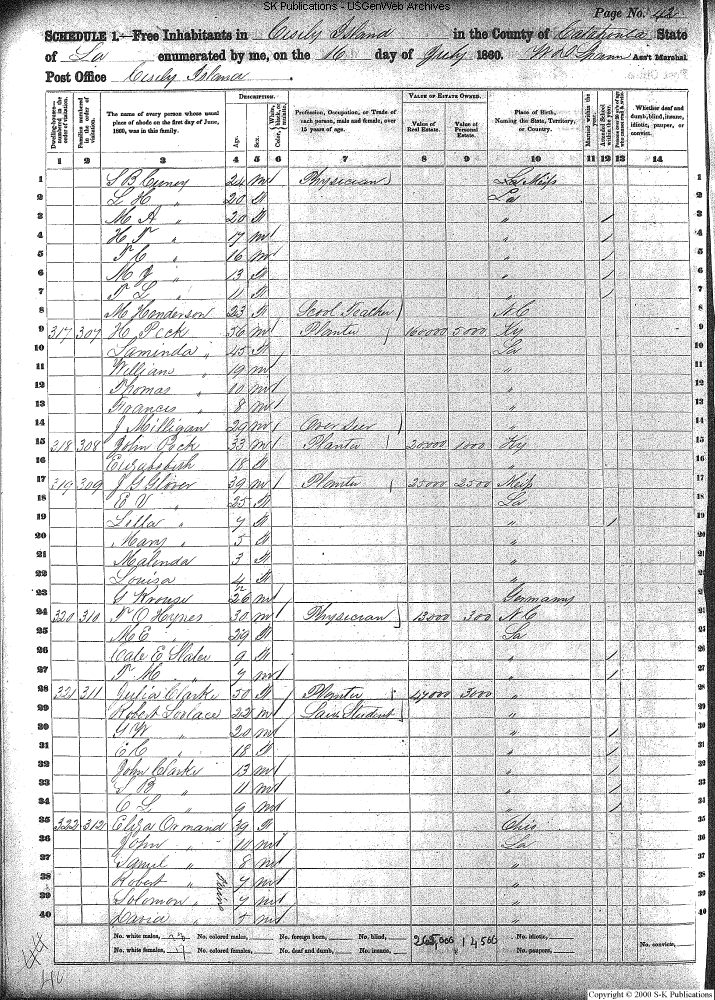 SK Publications - USGenWeb Archives
Page No. 42
SCHEDULE 1.—Free Inhabitants in Cisily Island in the County of Catahoula State
of La enumerated by me, on the 16 day of July 1860. Ass't Marshal
Post Office Cisily Island.
Dwelling-houses—numbered in the order of visitation.
Families numbered in the order of visitation.
The name of every person whose usual place of abode on the first day of June, 1860, was in this family.
DESCRIPTION.
Age.
Sex.
Color, {White, black, or mulatto.
Profession, Occupation, or Trade of each person, male and female, over 15 years of age.
VALUE OF ESTATE OWNED.
Value of Real Estate.
Value of Personal Estate.
Place of Birth, Naming the State, Territory, or Country.
Married within the year.
Attended School within the year.
Persons over 20 y'rs of age who cannot read & write.
Whether deaf and dumb, blind, insane, idiotic, pauper, or convict.
1 2 3 4 5 6 7 8 9 10 11 12 13 14
1 S B 24 m Physician La 1
2 L H " 20 f La 2
3 M A " 20 f " / 3
4 H " 17 m " / 4
5 " 16 m " / 5
6 M " 13 f " / 6
7 L " 11 f " / 7
8 M Henderson 23 f Scool Teather N C 8
9 317 307 H Peck 56 m Planter 160000 5000 Ky 9
10 Laminda " 45 f La 10
11 William " 19 m " 11
12 Thomas " 10 m " 12
13 Francis " 8 m " 13
14 J Milligan 29 m Over Seer " 14
15 318 308 John Peck 33 m Planter 20000 1000 Ky 15
16 18 f " 16
17 319 309 J G Glover 39 m Planter 25000 2500 Miss 17
18 E V " 25 f La 18
19 Lilla " 7 f " / 19
20 Mary " 5 f " 20
21 Malinda " 3 f " 21
22 Louisa " f " 22
23 G Krouse 26 m Germany 23
24 320 310 O Hynes 30 m Physician 13000 300 N C 24
25 M E " 29 f La 25
26 Cale E Slater 9 f " / 26
27 M " 7 m " / 27
28 321 311 Julia Clark 50 f Planter 47000 3000 " 28
29 Robert 22 m Law Student " 29
30 G W " 20 m " / 30
31 E C " 18 f " / 31
32 John Clark 13 m " / 32
33 B " 11 m " / 33
34 C L " 9 m " / 34
35 322 312 Eliza Ormand 39 f Ohio 35
36 John " 10 m La 36
37 Samul " 8 m " 37
38 Robert " 7 m " 38
39 Solomon " 7 m " 39
Twins
40 m " 40
No. white males, No. colored males, No. foreign born, No. blind, 265,000 14500 No. idiotic,
No. white females, 17 No. colored females, No. deaf and dumb, No. insane, No. paupers, No. convicts,
Copyright © 2000 S-K Publications